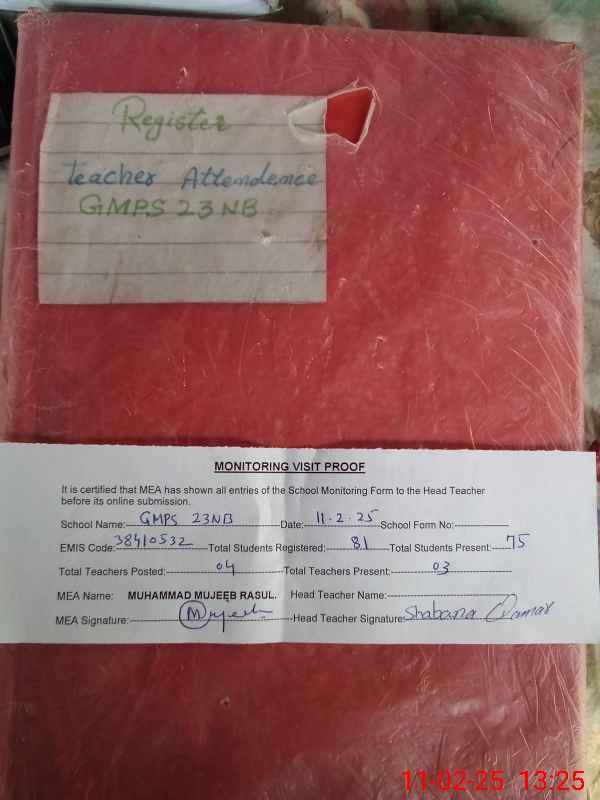 Register
Teacher Attendence
GMPS 23 NB
MONITORING VISIT PROOF
It is certified that MEA has shown all entries of the School Monitoring Form to the Head Teacher
before its online submission.
School Name: GMPS 23NB Date: 11.2.25 School Form No:
EMIS Code: 38410532 Total Students Registered: 81 Total Students Present: 75
Total Teachers Posted: 04 Total Teachers Present: 03
MEA Name: MUHAMMAD MUJEEB RASUL. Head Teacher Name:
MEA Signature: Mujeeb Head Teacher Signature: Shabana
11-02-25 13:25